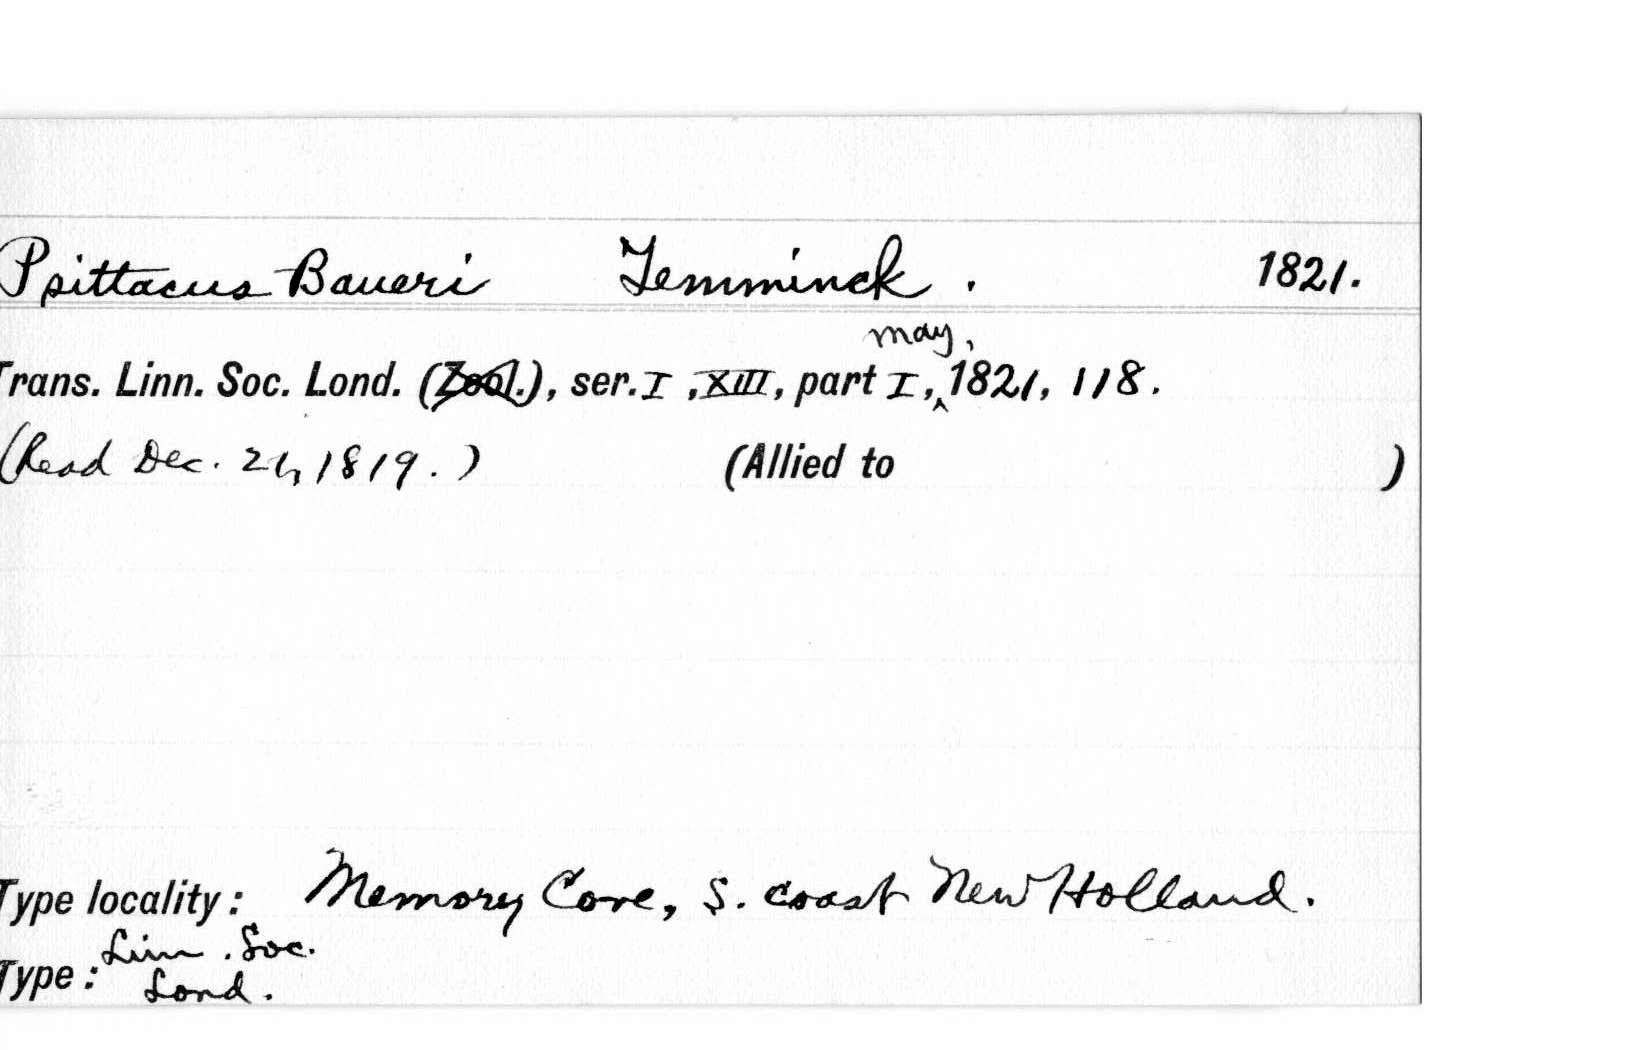 Psittacus Baueri Temminck. 1821.
may,
Trans. Linn. Soc. Lond. (Zool.), ser. I, XIII, part I, ‸1821, 118.
(Read Dec. 21, 1819.) (Allied to )
Type locality: Memory Cove, S. coast New Holland.
Linn. Soc.
Type: Lond.